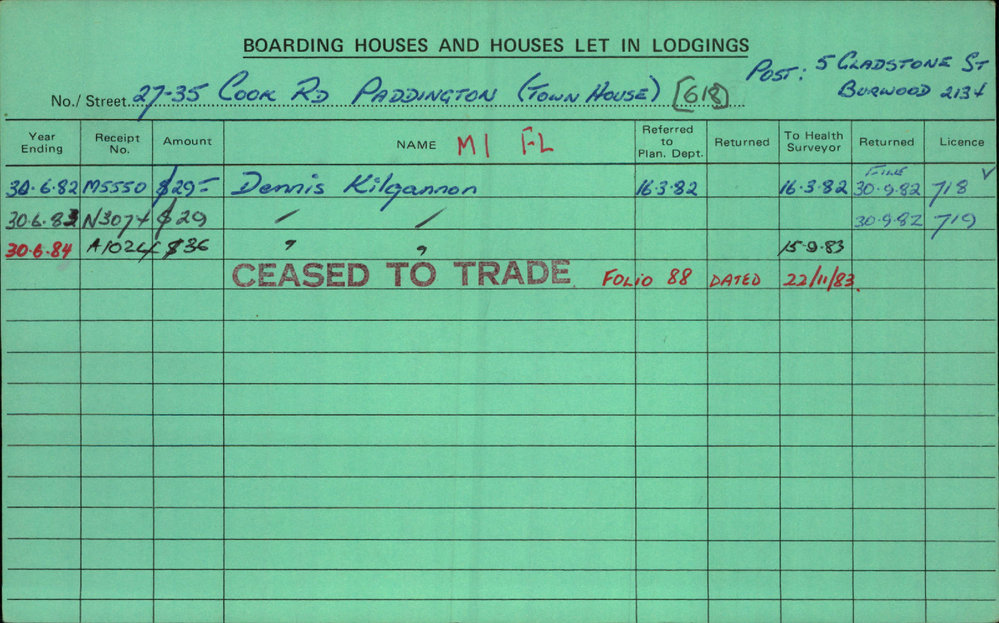 BOARDING HOUSES AND HOUSES LET IN LODGINGS
POST: 5 GLADSTONE ST
BURWOOD 2134
No./ Street 27-35 COOK RD PADDINGTON (TOWN HOUSE) [618]
Year Ending Receipt No. Amount NAME MI FL Referred to Plan. Dept. Returned To Health Surveyor Returned Licence
30.6.82 M5550 $29- Dennis Kilgannon 16.3.82 16.3.82 FINE 30.9.82 718 ✓
30.6.83 N3074 $29 " " 30.9.82 719
30.6.84 A1024 $36 " " 15.9.83
CEASED TO TRADE FOLIO 88 DATED 22/11/83.